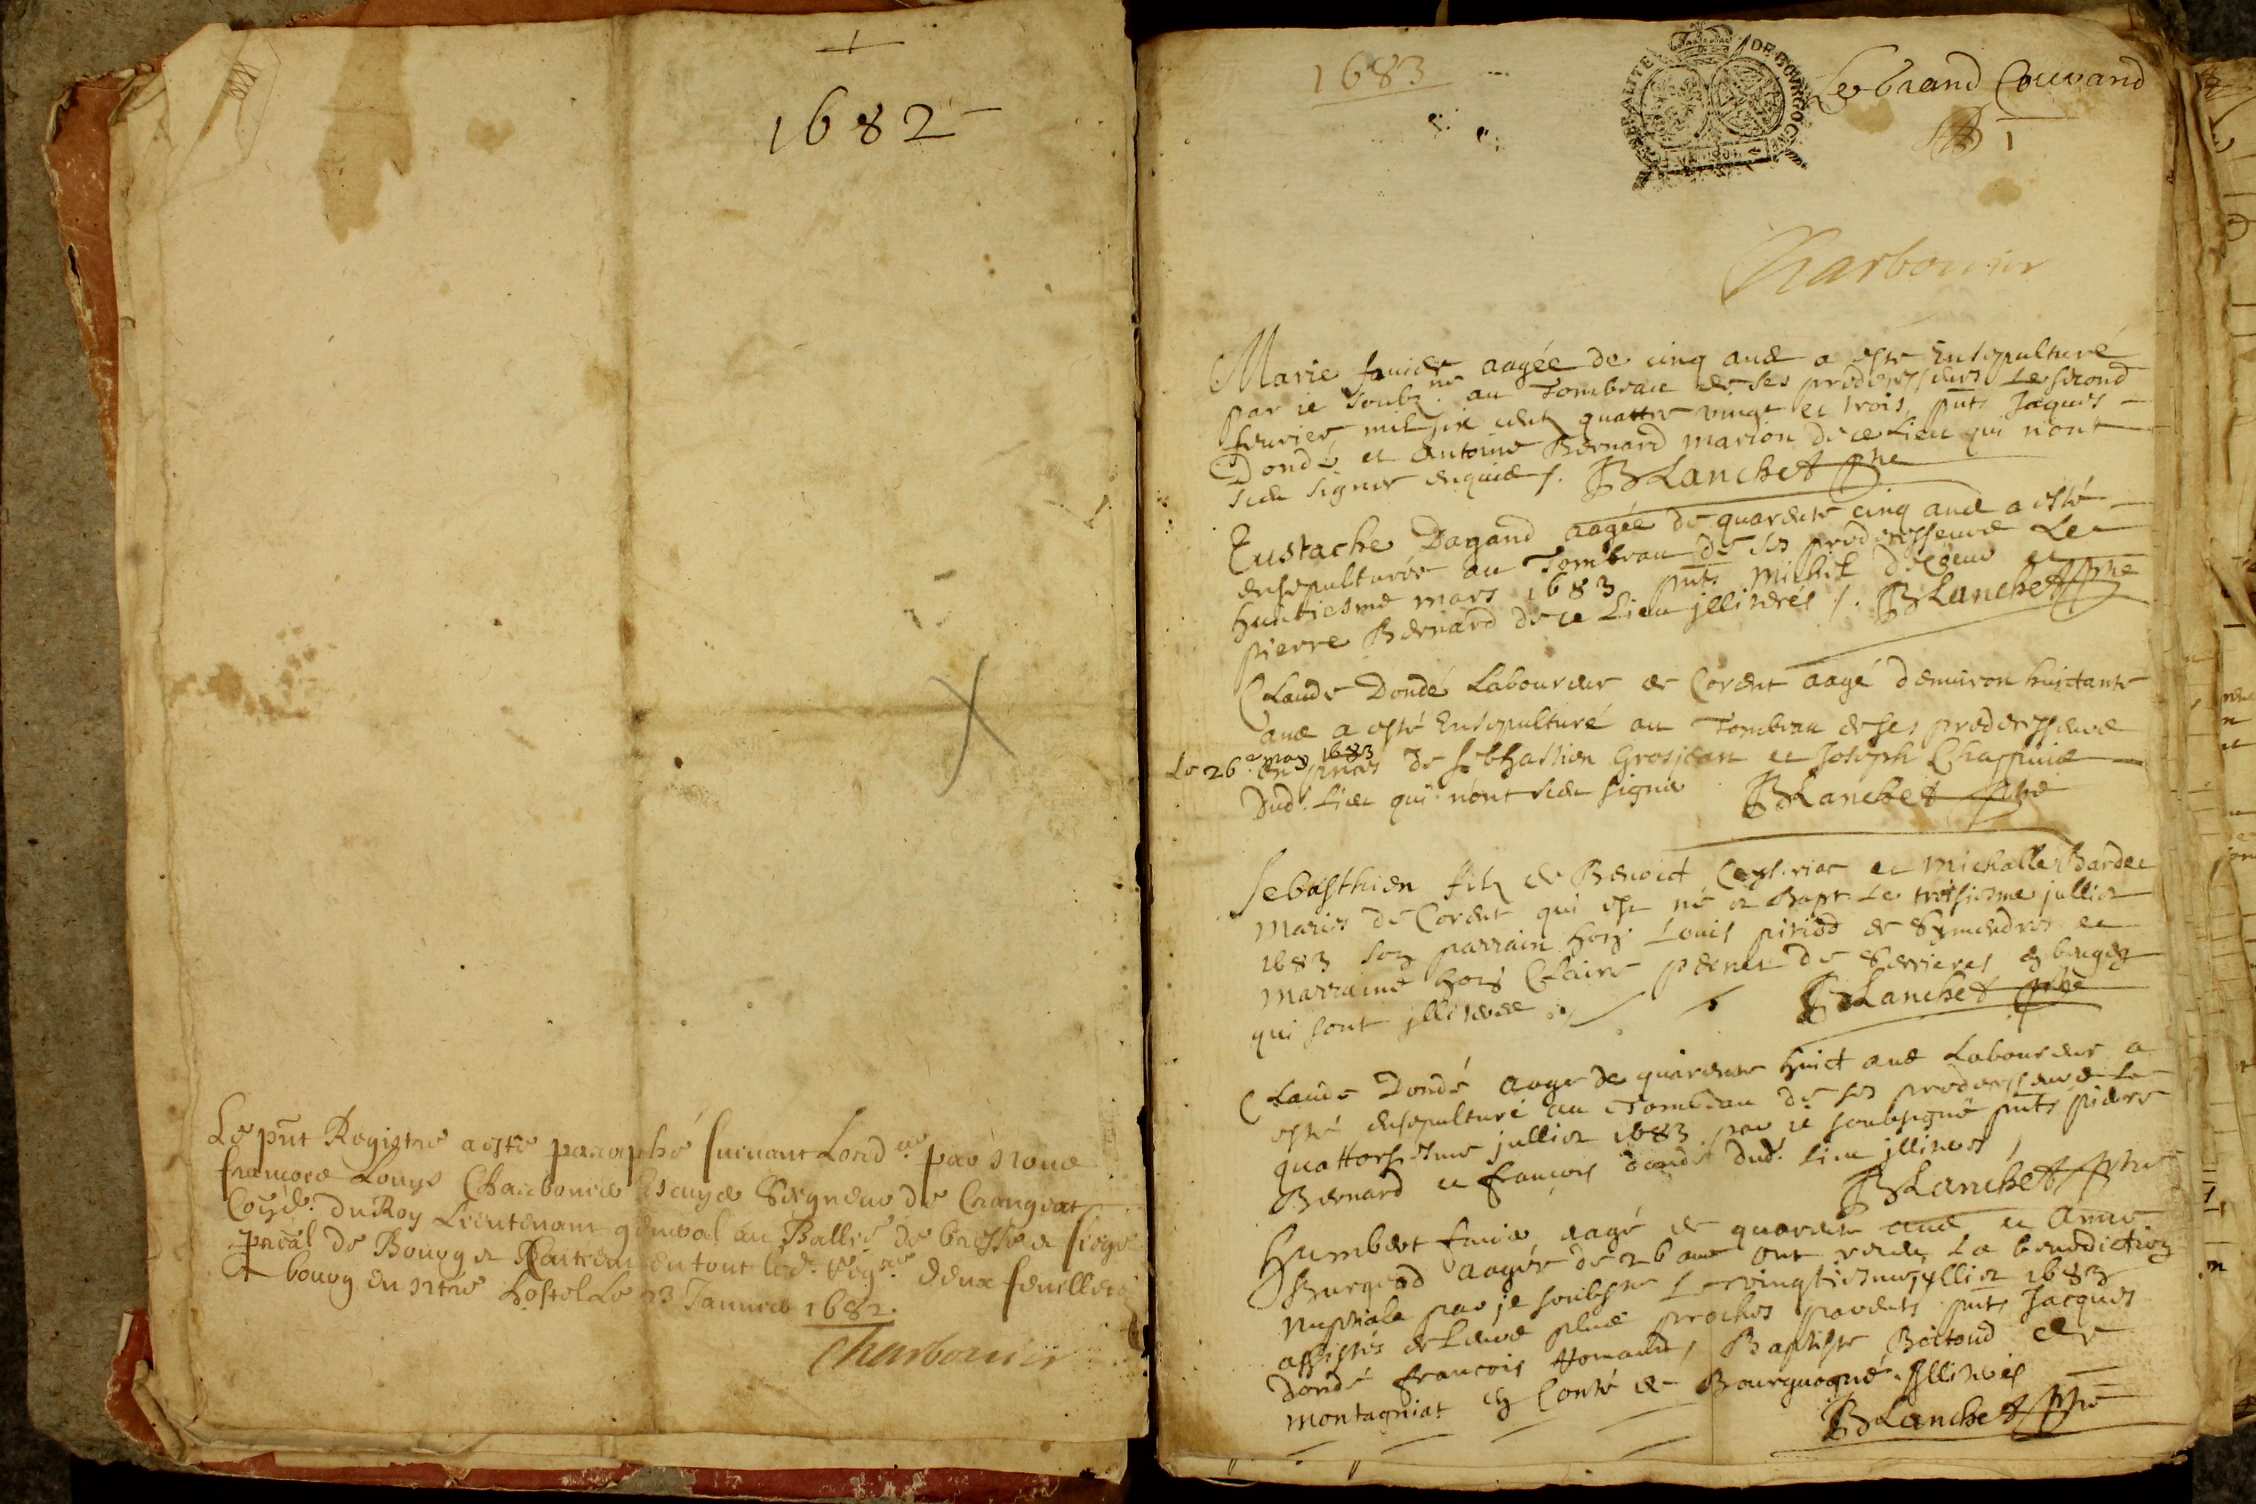 1682
Le pnt Registre a esté paraphé suivant Lord.ce par Nous
francois Louys Charbonnier Escuyer Seigneur de Crangeat
Con.er du Roy Lieutenant general au Balliage de bresse et siege
p̃ncal de Bourg et contenu en tout led. Reg.re deux feuillets
A bourg en n̄tre hostel Le 23 Janvier 1682.
Charbonier
1683
GENERALITE DE BOURGOGNE
Le Grand Couvand
1
Charbonier
Marie favier aagée de cinq ans a esté Ensepulturé
par je soubz.né au Tombeau de ses predecesseurs Le second
fevrier mil six cent quattre vingt et trois, pnts Jaques
Dondé et Antoine Bernard marion de ce Lieu qui n'ont
sceu signer enquis /. BLanchet ptre
Eustache Dagand aagée de quarente cinq ans a esté
ensepulturée au Tombeau de ses predecesseurs Le
huictiesme mars 1683 pnts Michel et
pierre Bernard de ce Lieu jlliterés /. BLanchet ptre
Claude Dondé Laboureur de Corent aagé d'environ huictante
ans a esté Ensepulturé au Tombeau de ses predecesseurs
Le 26e may 1683
en pnces de sebhastien Grosjean et Joseph Chappuis
Dud. Lieu qui n'ont sceu signer BLanchet ptre
Sebasthien filz de Benoict et Michalle Bardet
Maries de Corent qui est né et Bapt. Le troisiesme jullict
1683 son parrain hon. Louis piriod de Symandres et
marraine hon. Claire pernet de Serrieres en bugez
qui sont jlliteres ./ BLanchet ptre
Claude Dondé aage de quarente huict ans Laboureur a
esté ensepulturé au Tombeau de ses predecesseurs Le
quattorsiesme jullict 1683 par je soubsigné pnts piere
Bernard et françois dondé dud. Lieu jlliteres /
BLanchet ptre
Humbert favier aagé de quarente ans et Anne
Burgeod aagée de 26 ans ont receu La benediction
nuptiale par je soubsne Le vingtiesme jullict 1683
assistés de Leurs plus proches parents pnts Jacques
Dondé françois Homand, Baptiste Boitoud de
montagniat en Conté de Bourguogne. Jlliterés
BLanchet ptre